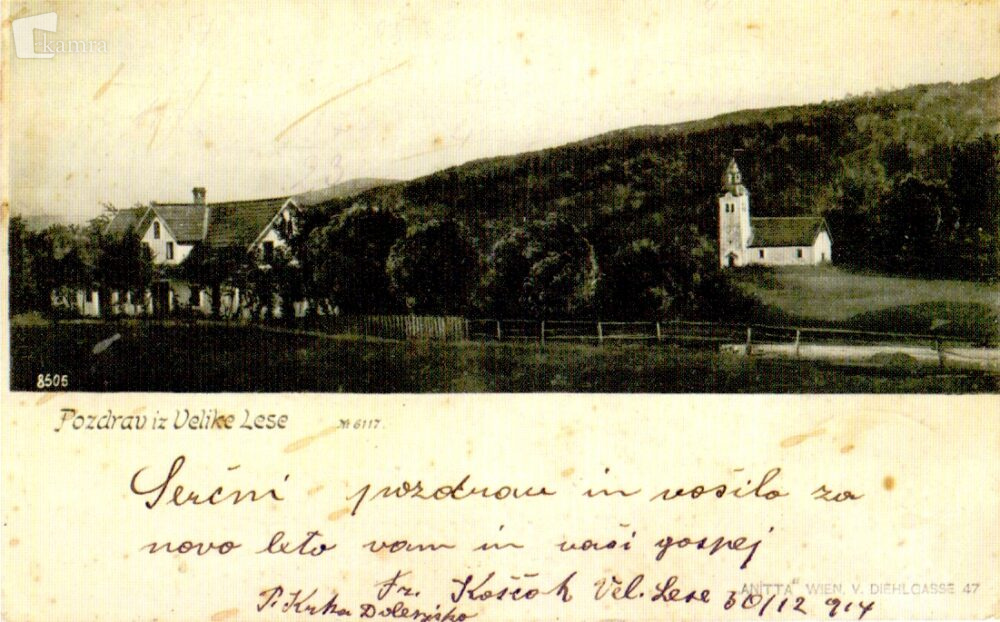 kamra
8506
Pozdrav iz Velike Lese № 6117.
Serčni pozdrav in vošilo za
novo leto vam in vaši gospej
Fr. Koščak Vel. Lese 30/12 914
P. Krka Dolenjsko
"ANITTA" WIEN, V. DIEHLGASSE 47